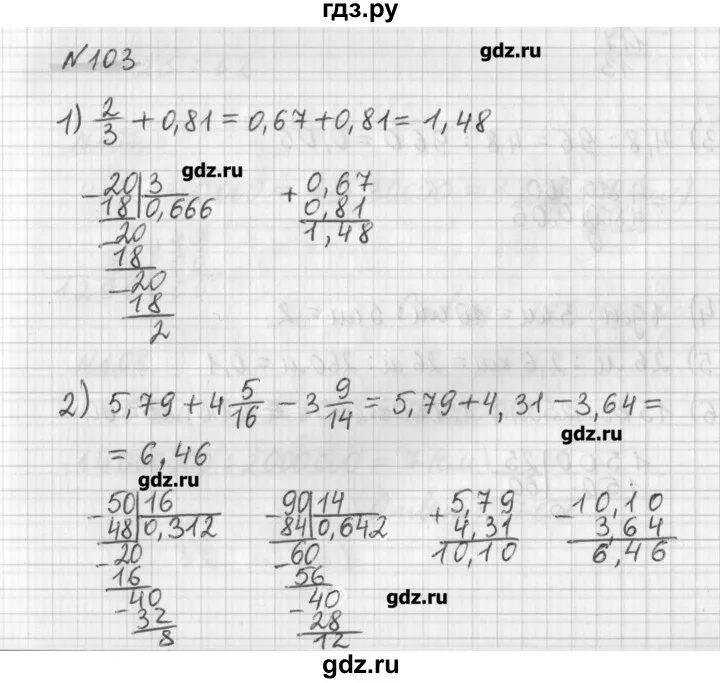 гдз.ру
№ 103
gdz.ru
1) 2/3 + 0,81 = 0,67 + 0,81 = 1,48
gdz.ru
- 20 | 3
18 | 0,666
- 20
18
- 20
18
2
+ 0,67
0,81
1,48
2) 5,79 + 4 5/16 - 3 9/14 = 5,79 + 4,31 - 3,64 =
gdz.ru
= 6,46
gdz.ru
- 50 | 16
48 | 0,312
- 20
16
- 40
32
8
- 90 | 14
84 | 0,642
- 60
56
- 40
28
12
+ 5,79
4,31
10,10
- 10,10
3,64
6,46
gdz.ru
gdz.ru